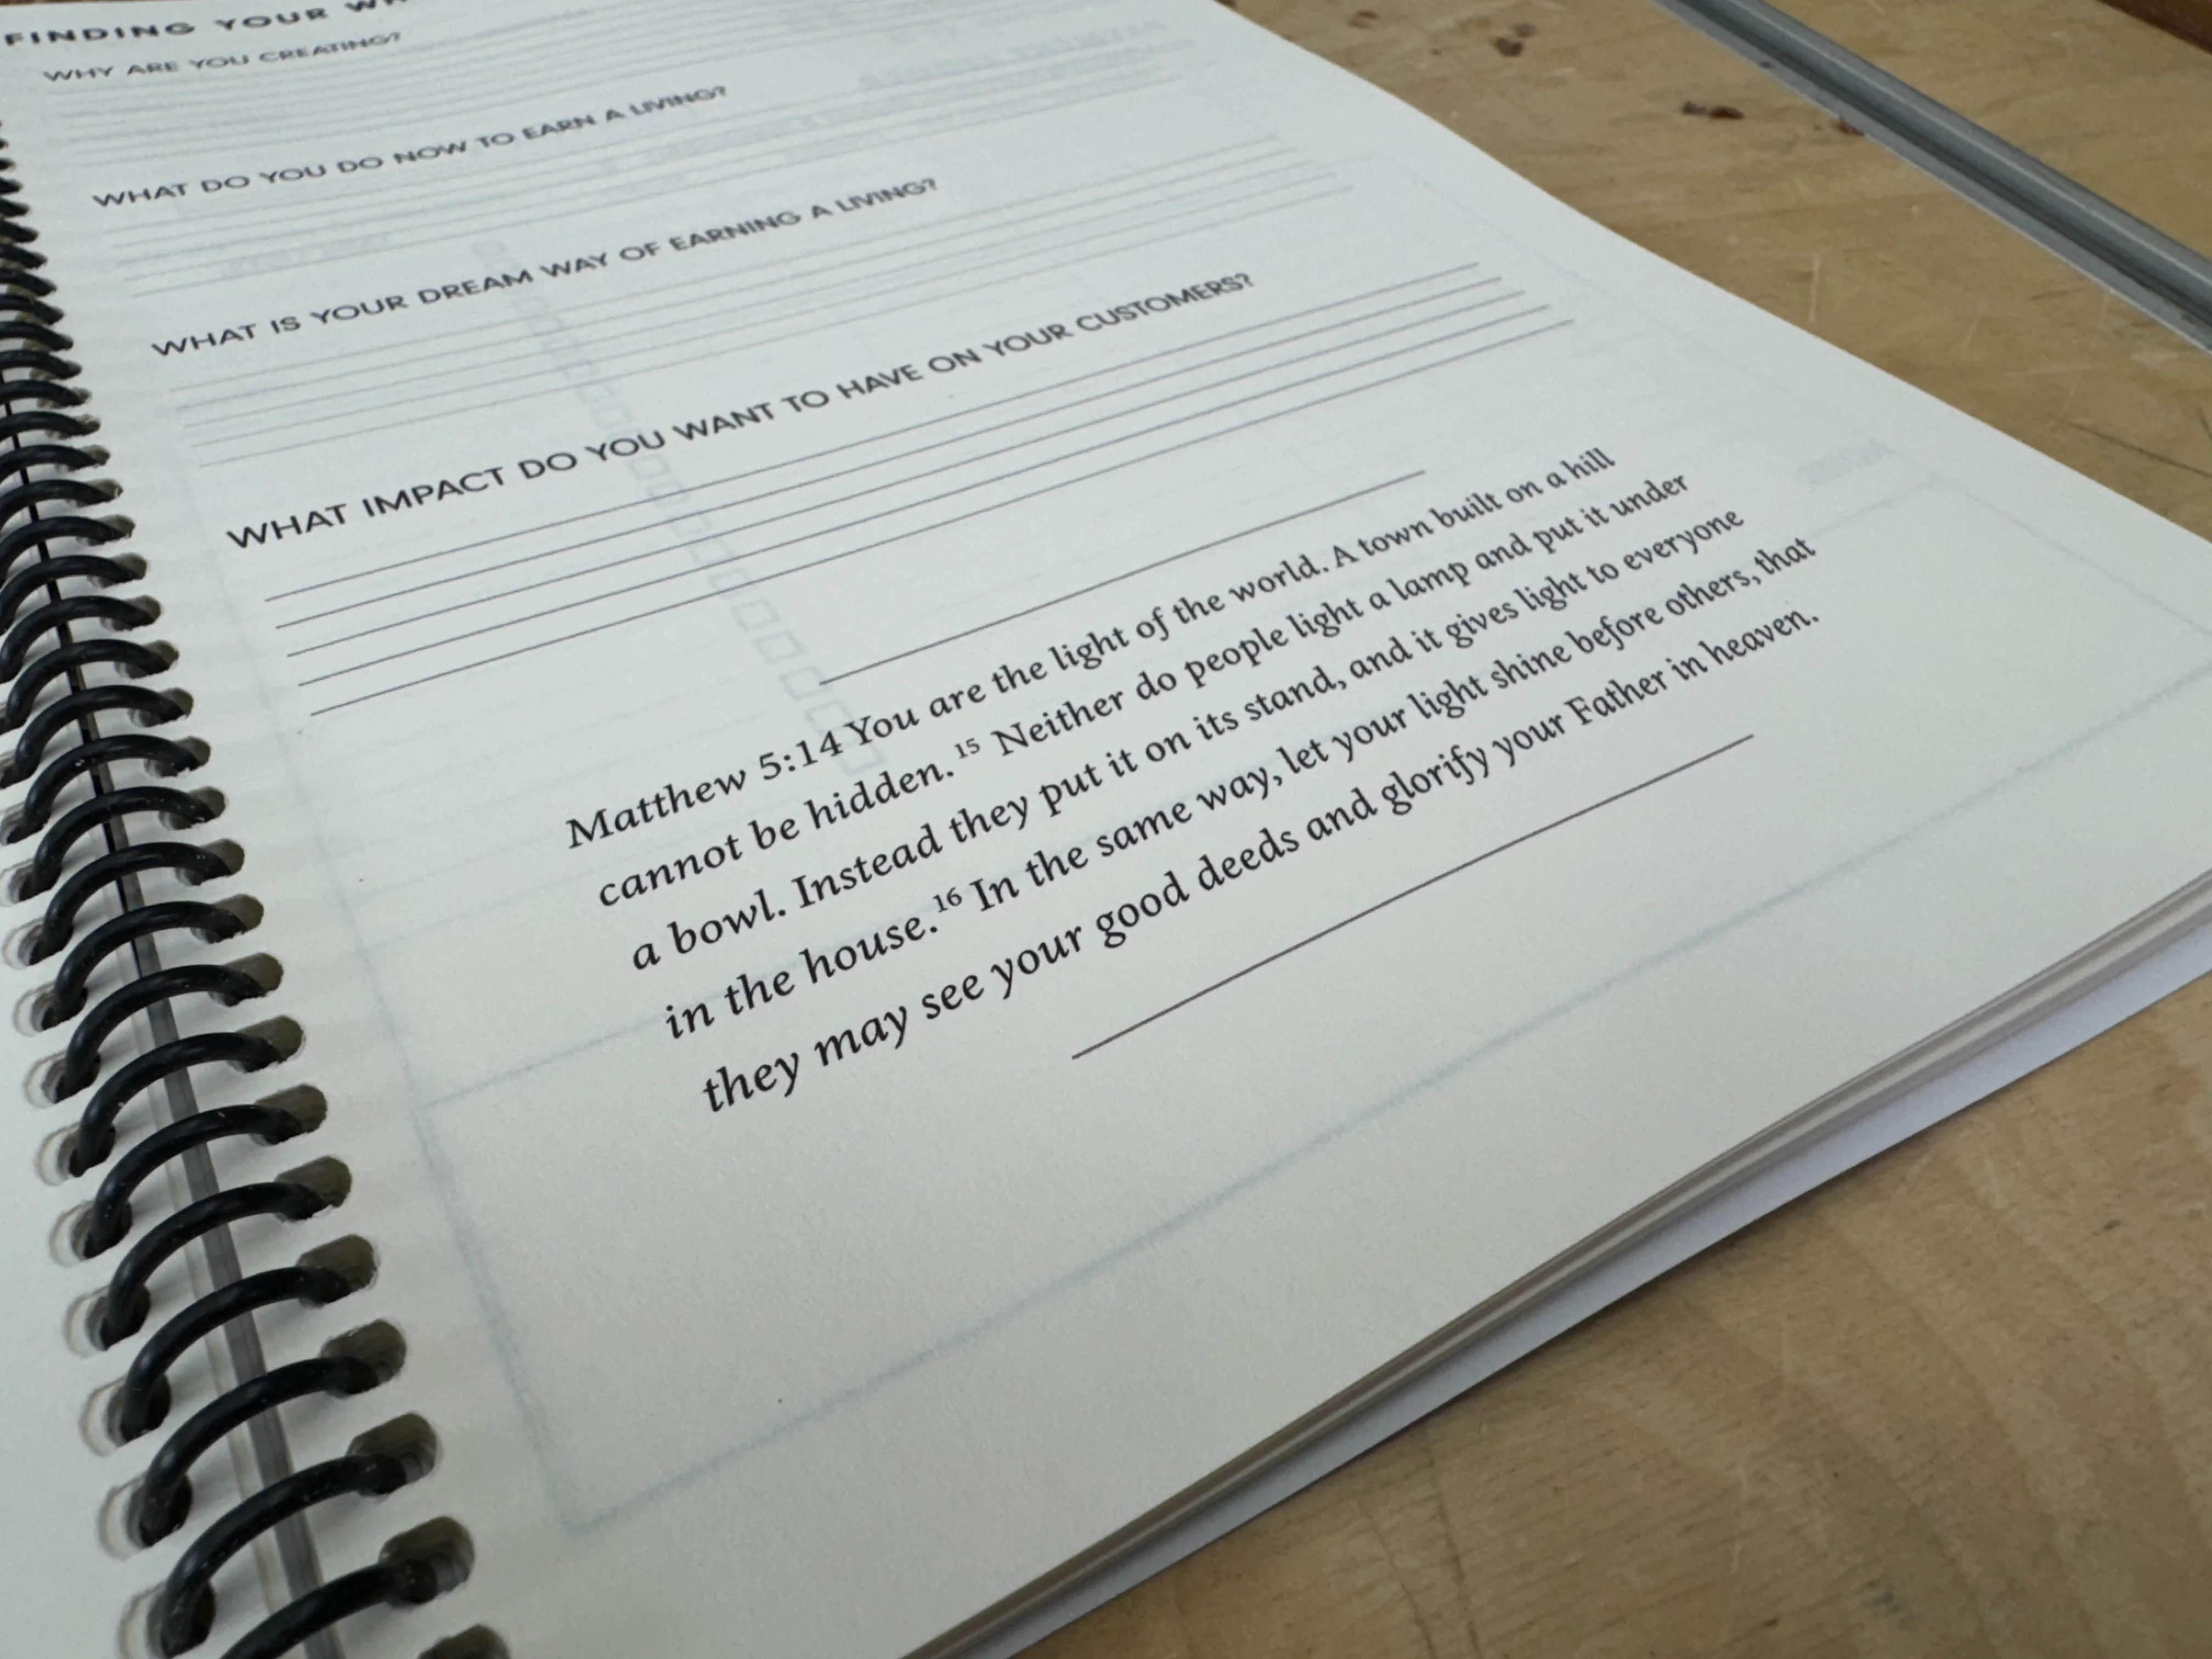 FINDING YOUR
WHY ARE YOU CREATING?
WHAT DO YOU DO NOW TO EARN A LIVING?
WHAT IS YOUR DREAM WAY OF EARNING A LIVING?
WHAT IMPACT DO YOU WANT TO HAVE ON YOUR CUSTOMERS?
Matthew 5:14 You are the light of the world. A town built on a hill
cannot be hidden. 15 Neither do people light a lamp and put it under
a bowl. Instead they put it on its stand, and it gives light to everyone
in the house. 16 In the same way, let your light shine before others, that
they may see your good deeds and glorify your Father in heaven.